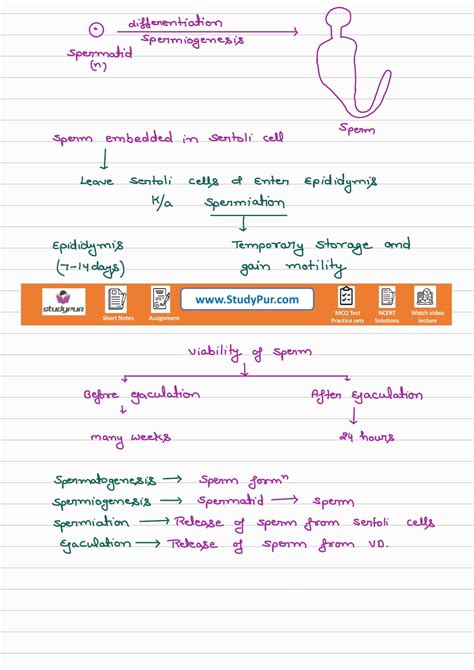 differentiation
Spermiogenesis
Spermatid
(n)
Sperm
Sperm embedded in Sertoli cell
Leave Sertoli cells & Enter Epididymis
K/a Spermiation
Epididymis Temporary Storage and
(7-14 days) gain motility
studypur
Short Notes
Assignment
www.StudyPur.com
MCQ Test
Practice sets
NCERT
Solutions
Watch video
lecture
Viability of Sperm
Before ejaculation After Ejaculation
many weeks 24 hours
Spermatogenesis → Sperm formⁿ
Spermiogenesis → Spermatid → Sperm
Spermiation → Release of sperm from sertoli cells
Ejaculation → Release of sperm from VD.